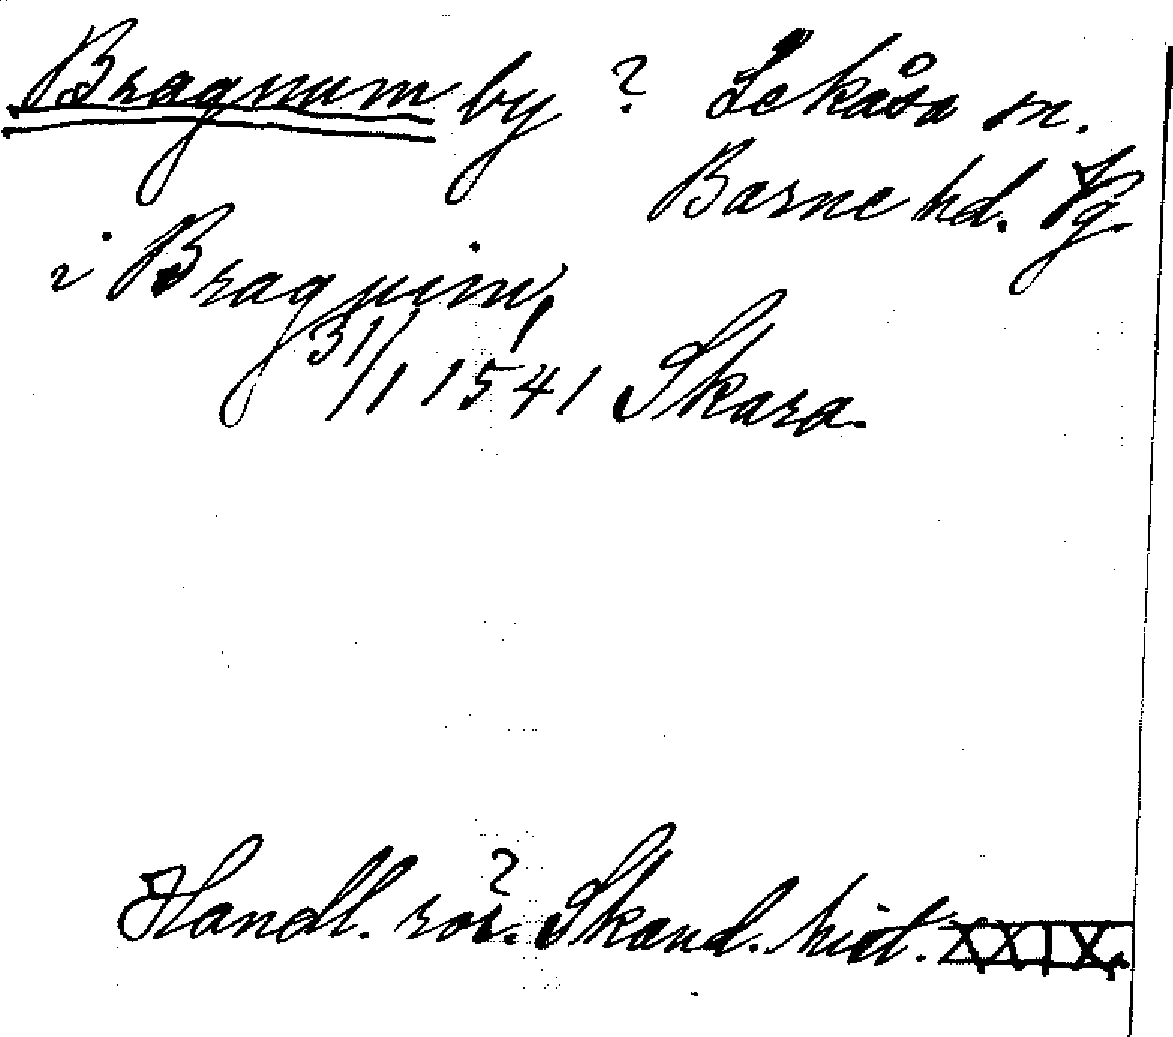 Bragnum by ? Lekåsa sn.
Barne hd. Vg.
i Bragnim,
31/1 1541 Skara.
Handl. rör. Skand. hist. XXIX.